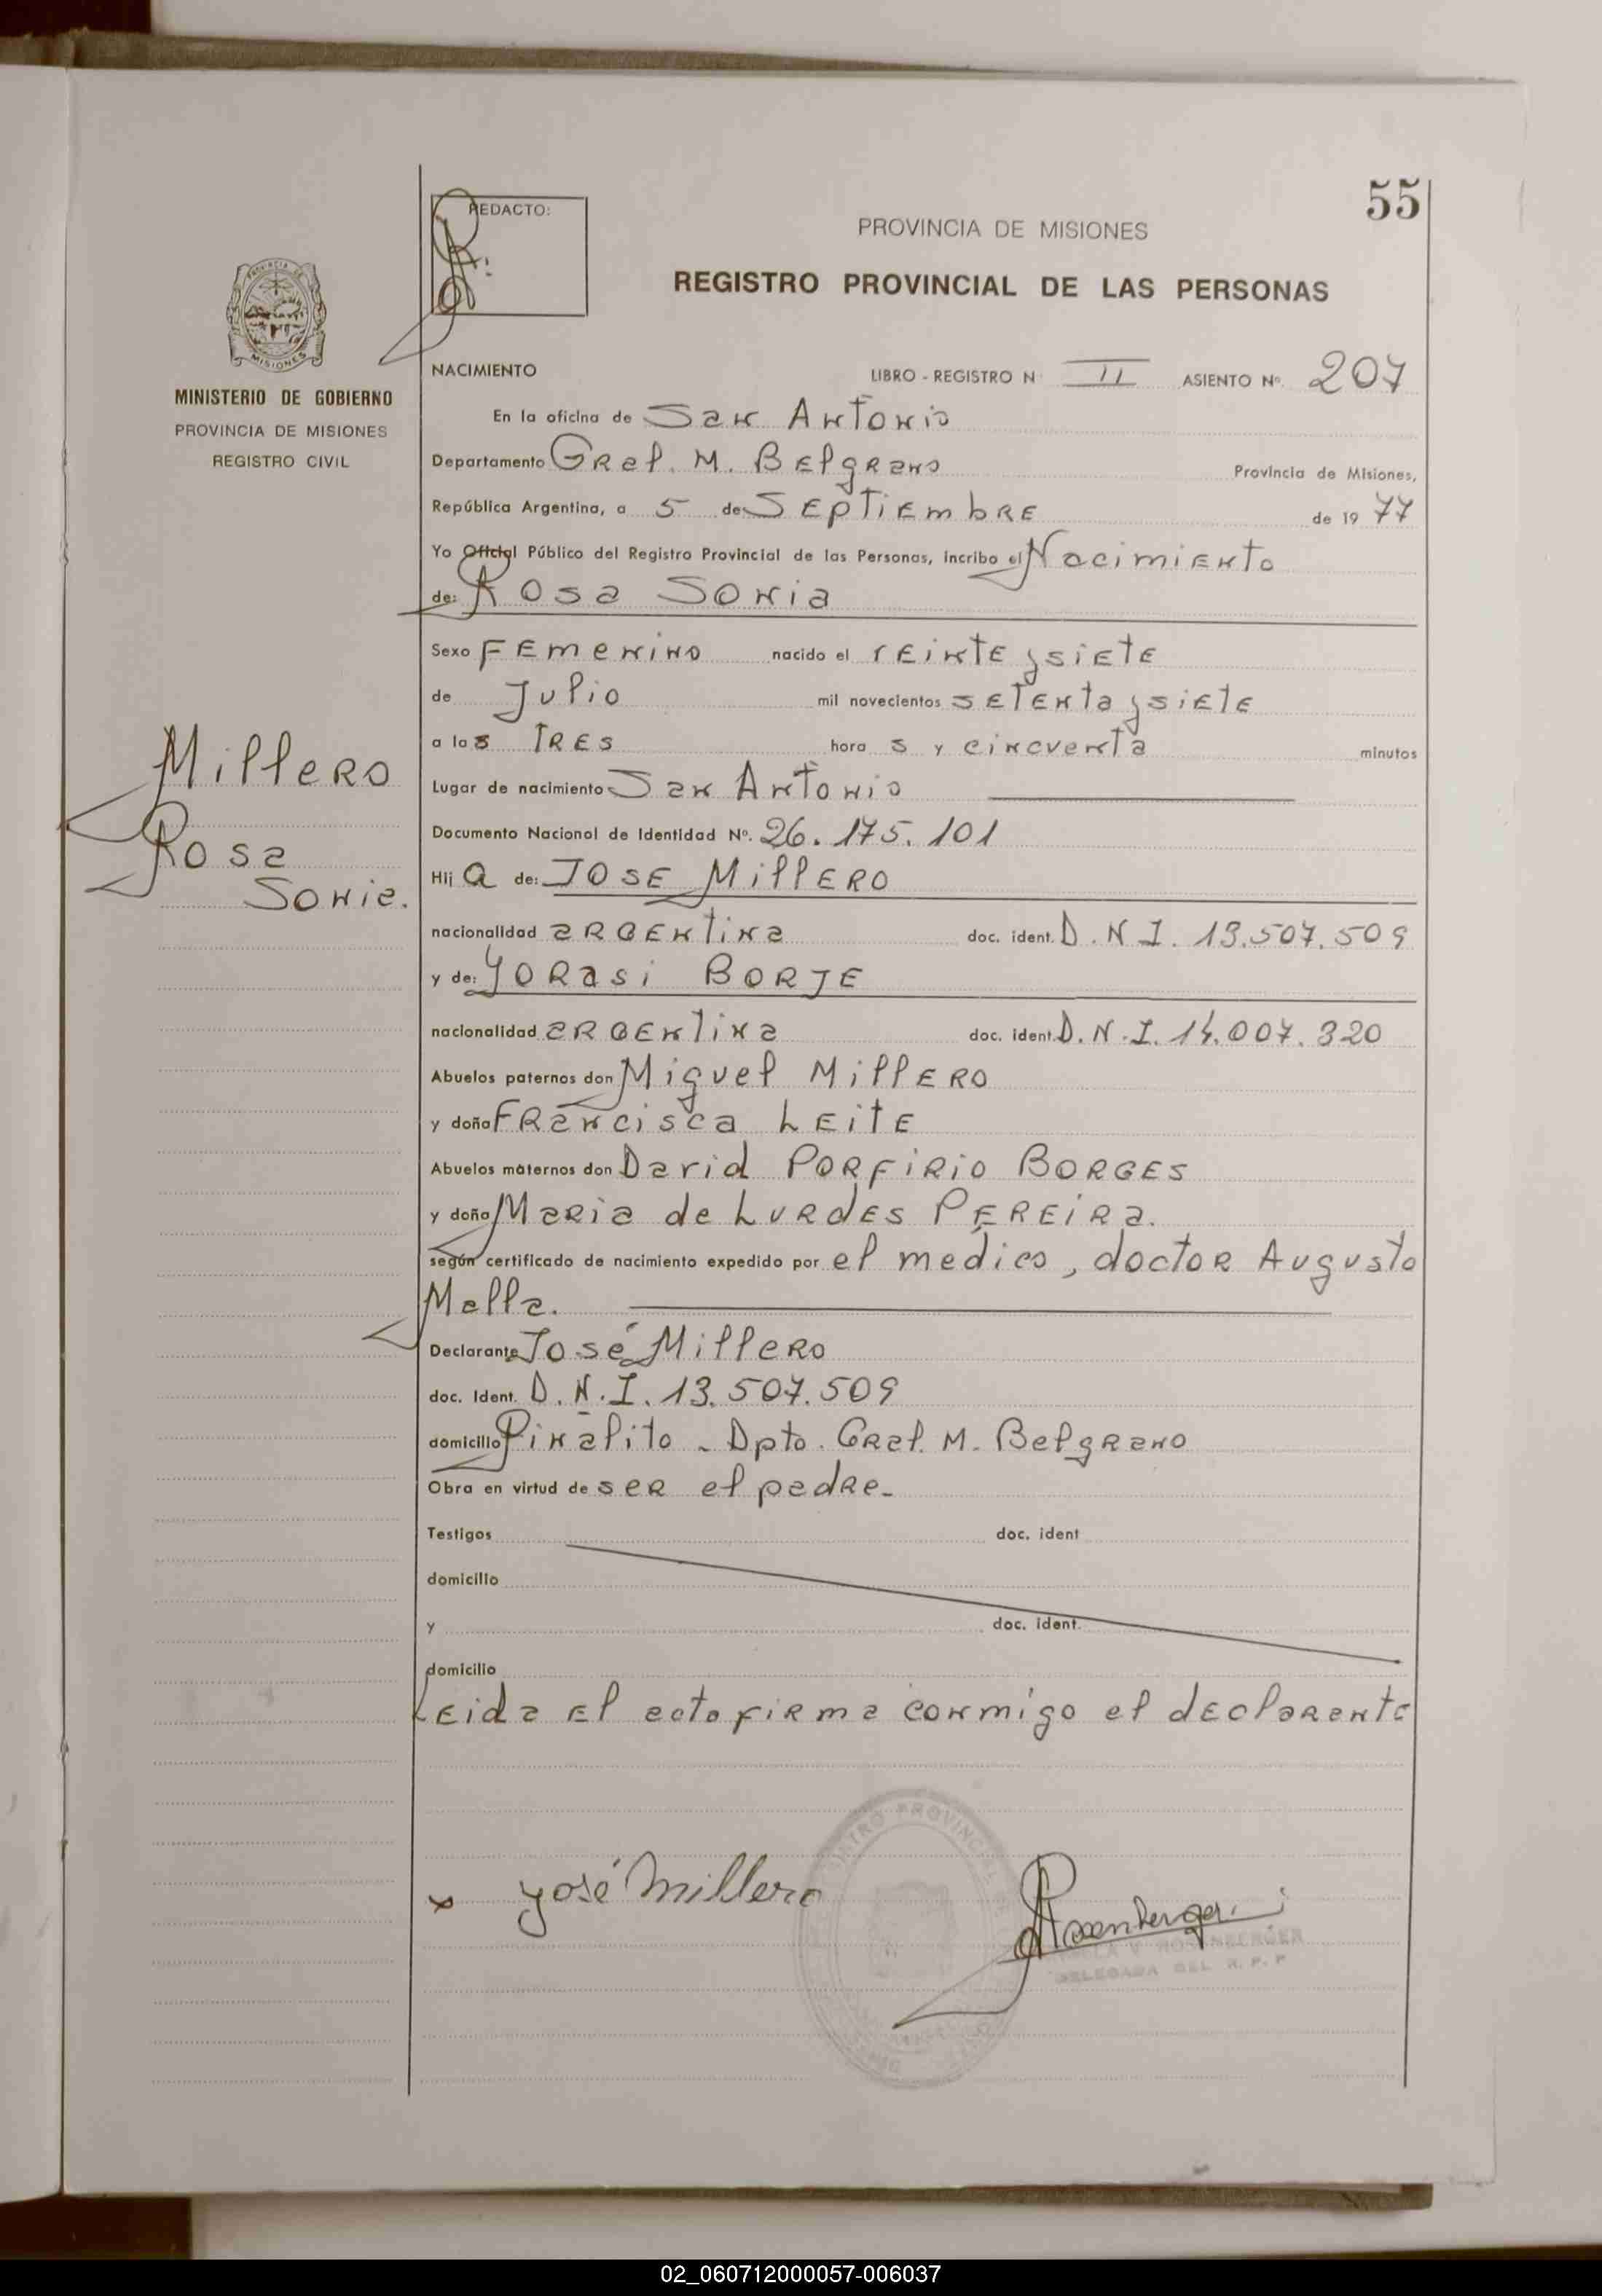 55
REDACTO:
PROVINCIA DE MISIONES
REGISTRO PROVINCIAL DE LAS PERSONAS
MISIONES
MINISTERIO DE GOBIERNO
PROVINCIA DE MISIONES
REGISTRO CIVIL
Millero
Rosa
Sonia.
NACIMIENTO LIBRO - REGISTRO N II ASIENTO Nº. 207
En la oficina de San Antonio
Departamento Gral. M. Belgrano Provincia de Misiones,
República Argentina, a 5 de Septiembre de 19 77
Yo Oficial Público del Registro Provincial de las Personas, incribo el Nacimiento
de: Rosa Sonia
Sexo Femenino nacido el veinte y siete
de Julio mil novecientos setenta y siete
a las tres horas y cincuenta minutos
Lugar de nacimiento San Antonio
Documento Nacional de Identidad Nº. 26.175.101
Hija de: Jose Millero
nacionalidad argentina doc. ident. D.N.I. 13.507.509
y de: Yorasi Borje
nacionalidad argentina doc. ident. D.N.I. 14.007.320
Abuelos paternos don Miguel Millero
y doña Francisca Leite
Abuelos maternos don David Porfirio Borges
y doña Maria de Lurdes Pereira.
según certificado de nacimiento expedido por el medico, doctor Augusto
Malla.
Declarante José Millero
doc. Ident. D.N.I. 13.507.509
domicilio Piñalito - Dpto. Gral. M. Belgrano
Obra en virtud de ser el padre.
Testigos doc. ident
domicilio
y doc. ident.
domicilio
Leida el acta firma conmigo el declarante
x José Millero
Rosenberger
ROSENBERGER
DELEGADA DEL R.P.P
02_060712000057-006037